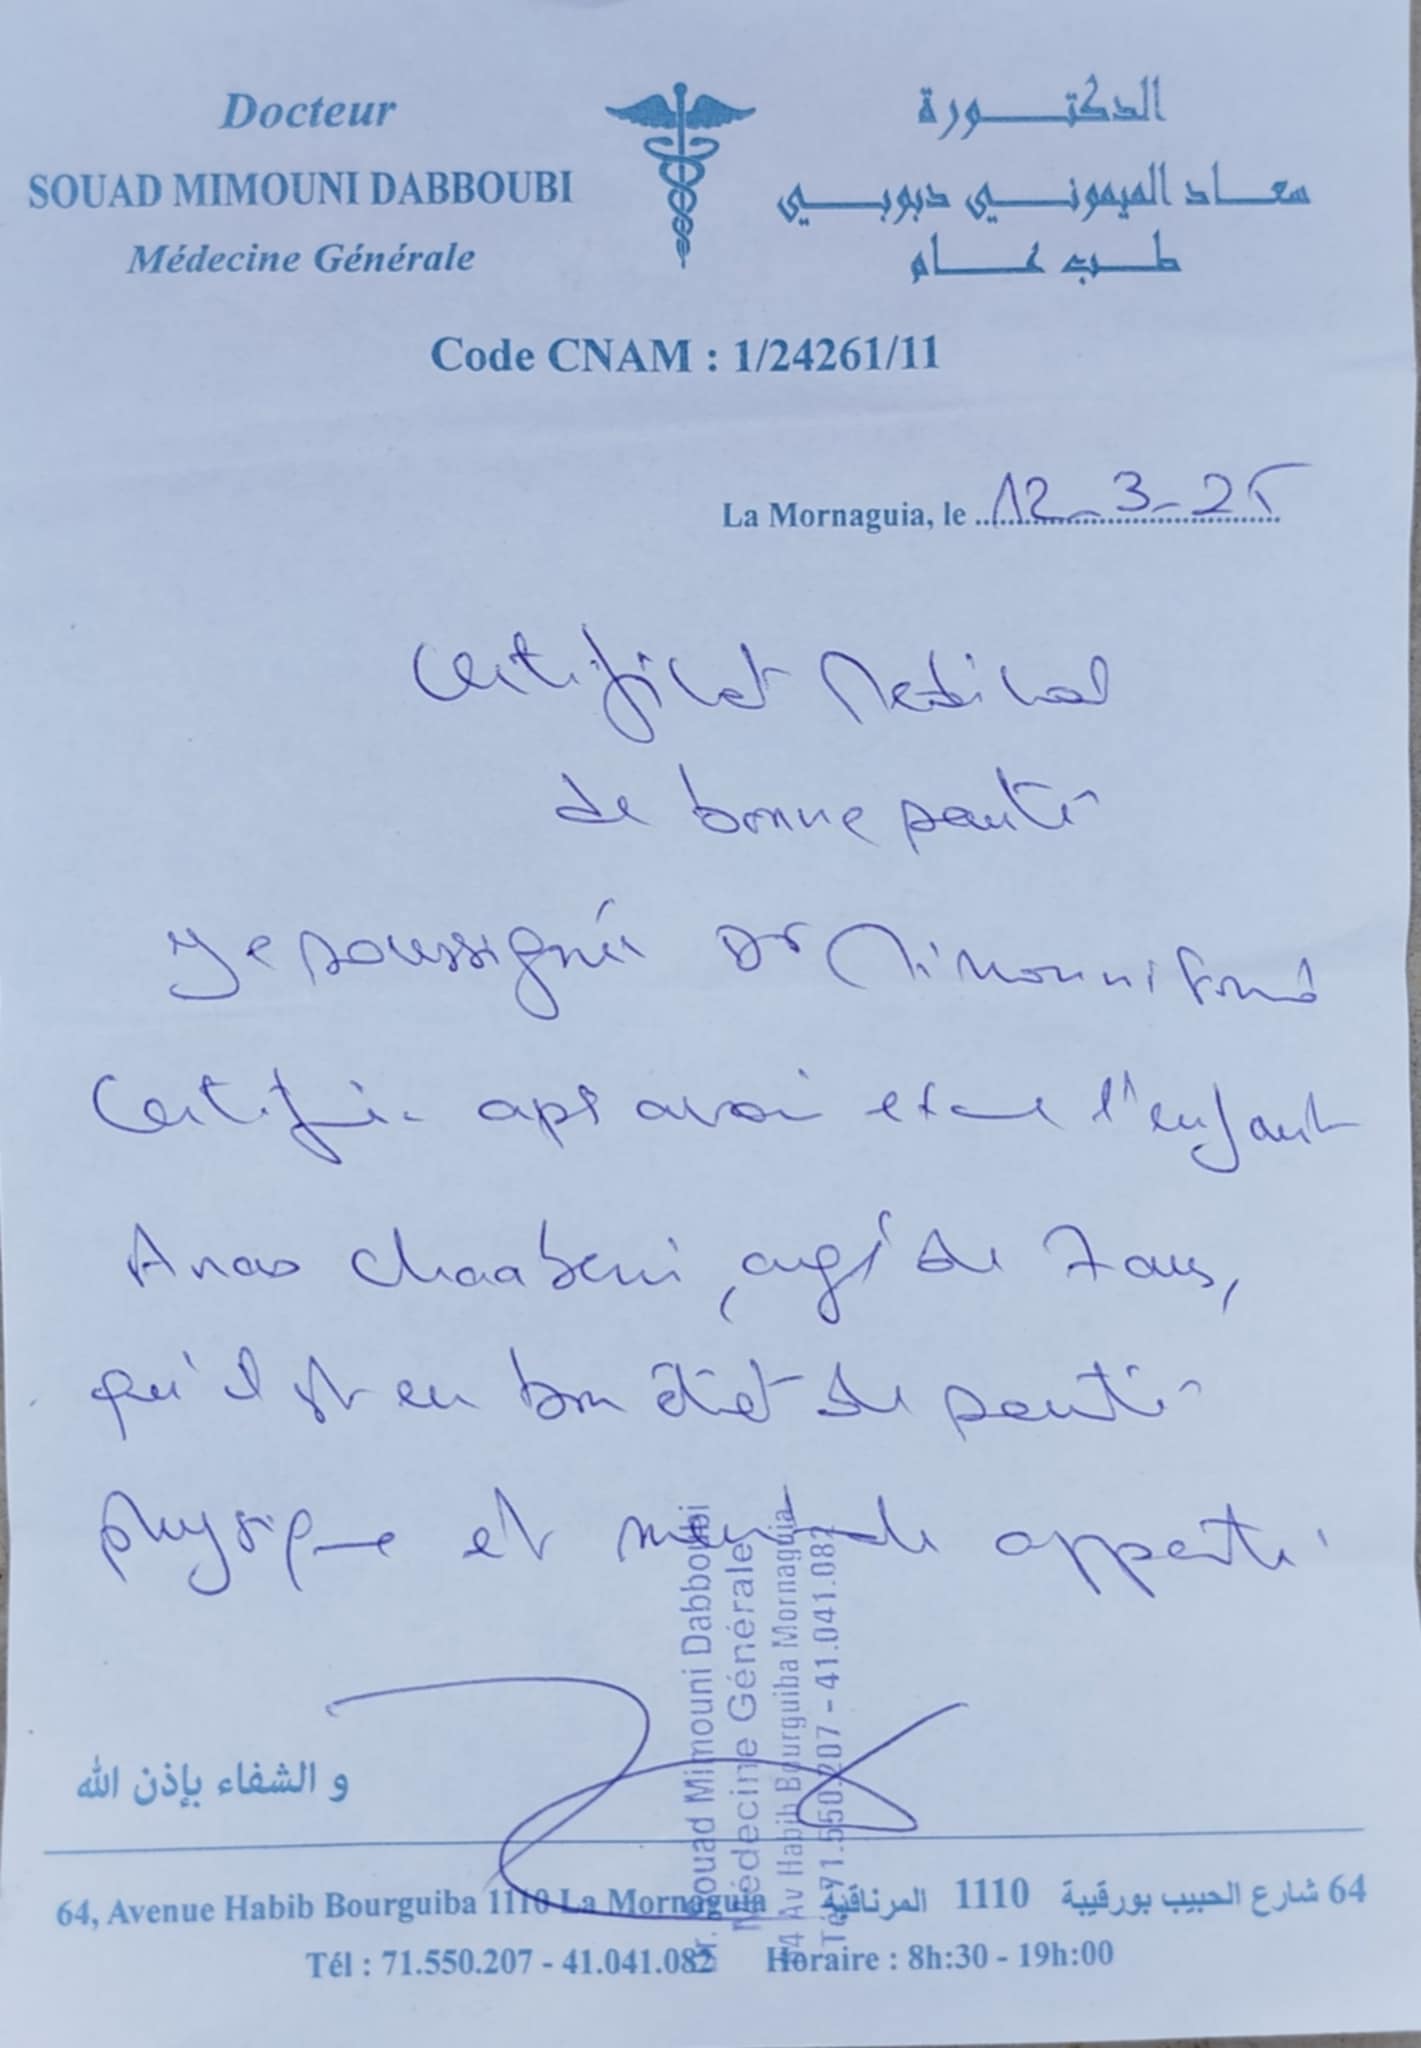 Docteur
SOUAD MIMOUNI DABBOUBI
Médecine Générale
الدكتورة
سعاد الميموني دبوبي
طب عام
Code CNAM : 1/24261/11
La Mornaguia, le 12-3-25
Certificat Medical
de bonne santé
Je soussignée Dr Mimouni
Certifie apr avoir l'enfant
Anas Chaabeni, agé de 7 ans,
qu'il est en bon état de santé
physique et mentale apparte
Dr. Souad Mimouni Dabboubi
Médecine Générale
64 Av Habib Bourguiba Mornaguia
Tél 71.550.207 - 41.041.082
و الشفاء بإذن الله
64, Avenue Habib Bourguiba 1110 La Mornaguia
64 شارع الحبيب بورقيبة 1110 المرناقية
Tél : 71.550.207 - 41.041.082 Horaire : 8h:30 - 19h:00